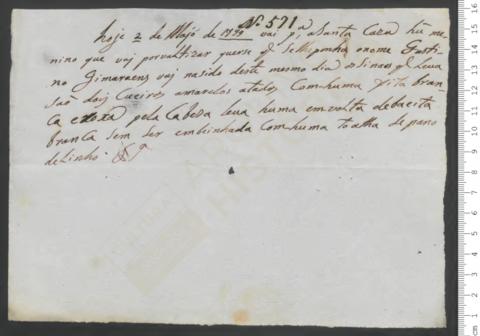 Nº 571
hoje 2 de Majo de 1799 vai pª a Santa Caza hũ me
nino que vaj por valtizar quer se qe selle ponha o nome Fausti
no Gimaraens vaj nasido deste mesmo dia os sinaes qe Leva
saõ dois Cueiros amarelos atados Com huma fita bran
Ca e roxa pela Cabesa Leva huma emvolta de bacita
branCa sem ser embainhada Com huma toalha de pano
de Linho